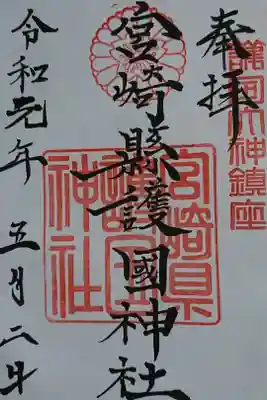 護国大神鎮座
奉拝
宮崎縣護國神社
宮崎県
護国
神社
令和元年 五月二